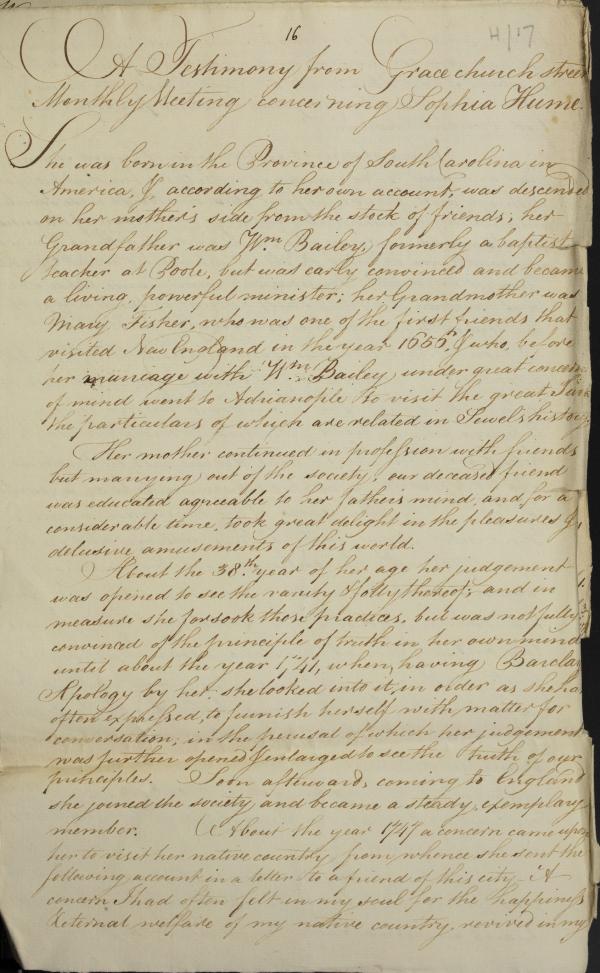 16
H/17
A Testimony from Gracechurch street
Monthly Meeting concerning Sophia Hume.
She was born in the Province of South Carolina in
America, & according to her own account, was descended
on her mother's side from the stock of friends; her
Grandfather was Wm Bailey, formerly a baptist
teacher at Poole, but was early convinced and became
a living, powerful minister; her Grandmother was
Mary Fisher, who was one of the first friends that
visited New England in the year 1655, & who, before
her marriage with Wm Bailey, under great concern
of mind went to Adrianople to visit the great Turk
the particulars of which are related in Sewel's history.
Her mother continued in profession with friends
but marrying out of the society, our deceased friend
was educated agreeable to her father's mind, and for a
considerable time, took great delight in the pleasures &
delusive amusements of this world.
About the 38th year of her age her judgement
was opened to see the vanity & folly thereof; and in
measure she forsook those practices, but was not fully
convinced of the principle of truth in her own mind
until about the year 1741, when, having Barclay
Apology by her she looked into it, in order as she ha
often expressed, to furnish herself with matter for
conversation; in the perusal of which her judgement
was further opened & enlarged to see the truth of our
principles. Soon afterward, coming to England
she joined the society, and became a steady, exemplary
member. About the year 1747 a concern came upon
her to visit her native country, from whence she sent the
following account in a letter to a friend of this city—"A
concern I had often felt in my soul for the happiness
& eternal welfare of my native country, revived in my